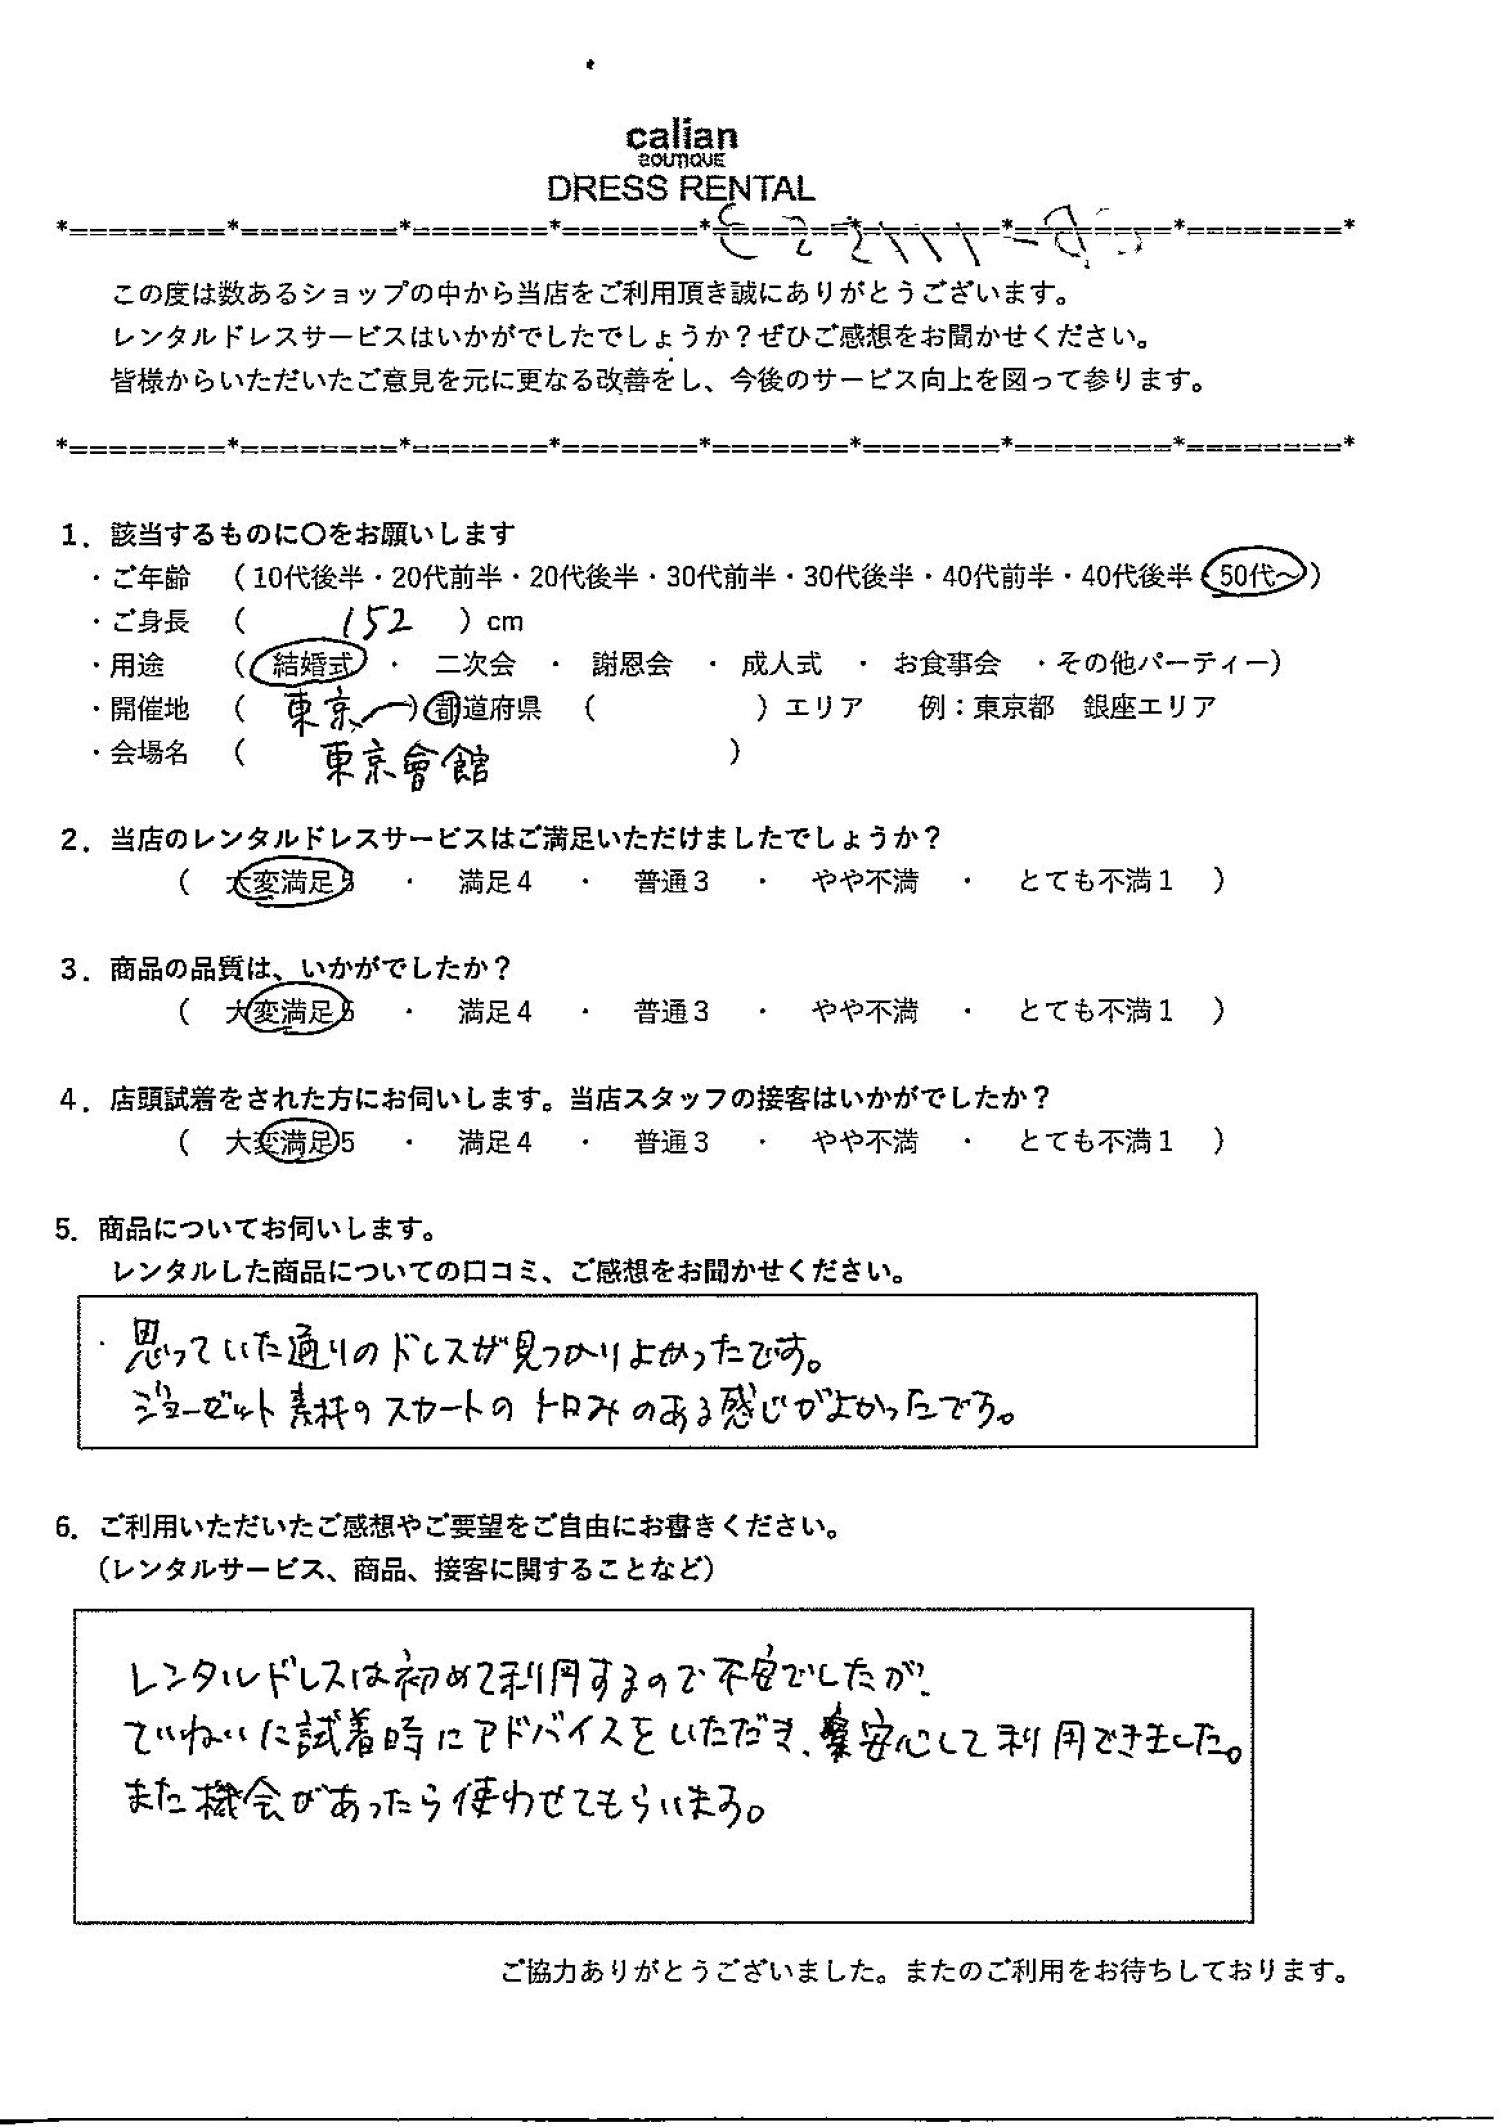 calian
BOUTIQUE
DRESS RENTAL
*========*========*=======*=======*=======*=======*========*========*
この度は数あるショップの中から当店をご利用頂き誠にありがとうございます。
レンタルドレスサービスはいかがでしたでしょうか？ぜひご感想をお聞かせください。
皆様からいただいたご意見を元に更なる改善をし、今後のサービス向上を図って参ります。
*========*========*=======*=======*=======*=======*========*========*
1．該当するものに〇をお願いします
・ご年齢 （10代後半・20代前半・20代後半・30代前半・30代後半・40代前半・40代後半・50代～）
・ご身長 （ 152 ）cm
・用途 （ 結婚式 ・ 二次会 ・ 謝恩会 ・ 成人式 ・ お食事会 ・その他パーティー）
・開催地 （ 東京 ）都道府県 （ ）エリア 例：東京都 銀座エリア
・会場名 （ 東京會館 ）
2．当店のレンタルドレスサービスはご満足いただけましたでしょうか？
（ 大変満足5 ・ 満足4 ・ 普通3 ・ やや不満 ・ とても不満1 ）
3．商品の品質は、いかがでしたか？
（ 大変満足5 ・ 満足4 ・ 普通3 ・ やや不満 ・ とても不満1 ）
4．店頭試着をされた方にお伺いします。当店スタッフの接客はいかがでしたか？
（ 大変満足5 ・ 満足4 ・ 普通3 ・ やや不満 ・ とても不満1 ）
5．商品についてお伺いします。
レンタルした商品についての口コミ、ご感想をお聞かせください。
思っていた通りのドレスが見つかりよかったです。
ジョーゼット素材のスカートのトロみのある感じがよかったです。
6．ご利用いただいたご感想やご要望をご自由にお書きください。
（レンタルサービス、商品、接客に関することなど）
レンタルドレスは初めて利用するので不安でしたが、
ていねいに試着時にアドバイスをいただき、安心して利用できました。
また機会があったら使わせてもらいます。
ご協力ありがとうございました。またのご利用をお待ちしております。